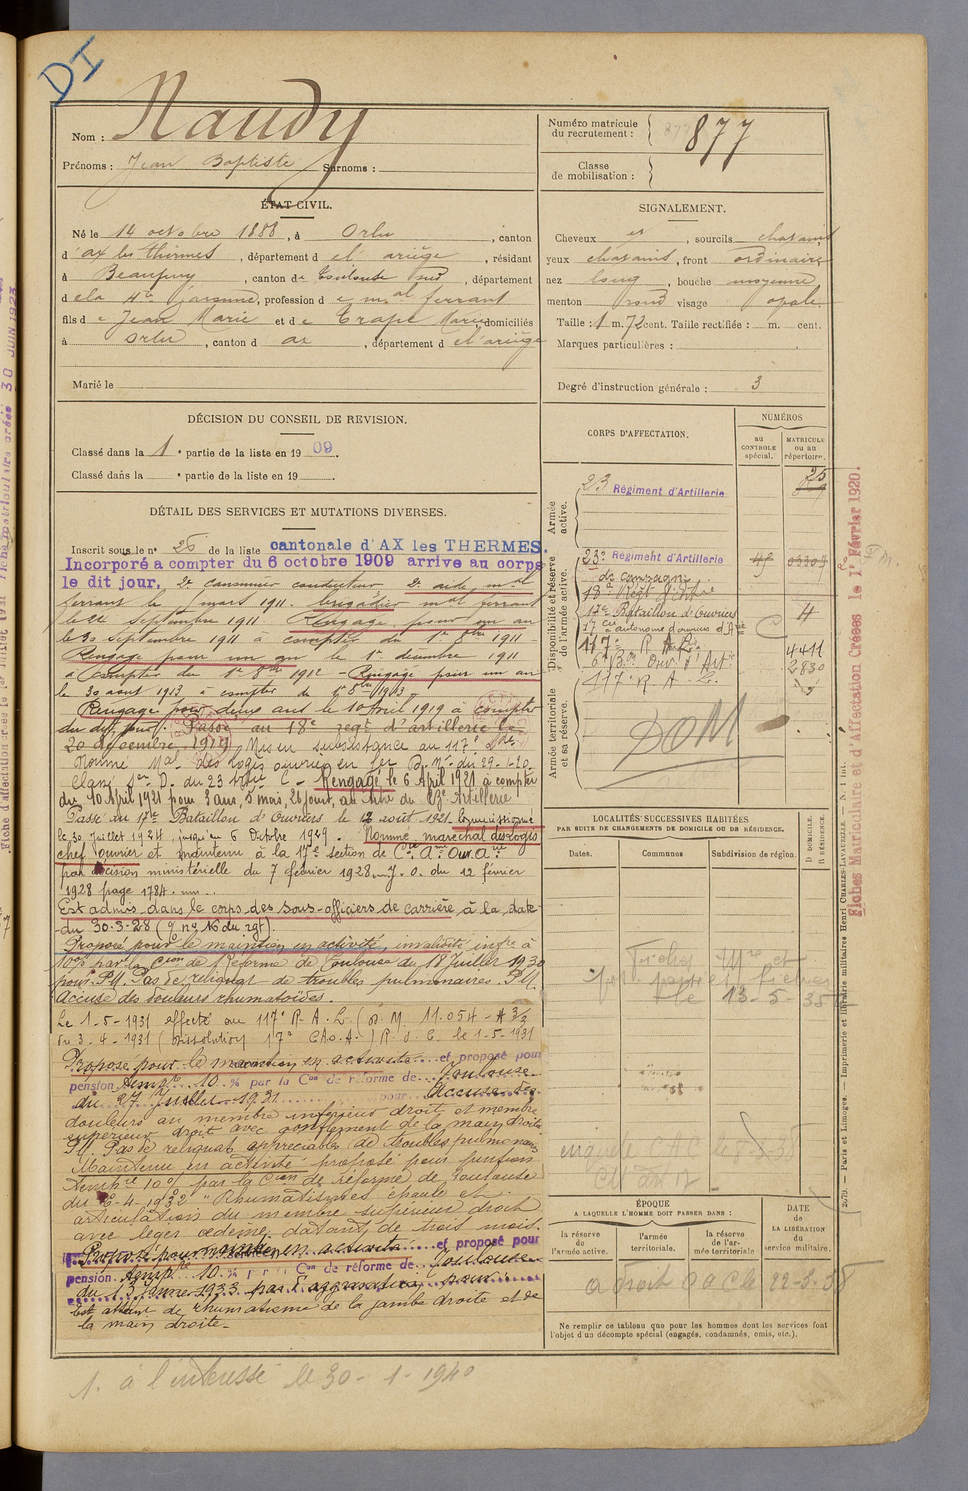 DI
Nom : Naudy
Prénoms : Jean Baptiste Surnoms :
Numéro matricule du recrutement : 877
Classe de mobilisation :
ÉTAT CIVIL.
Né le 14 octobre 1888, à Orlu, canton
d'ax les thermes, département d el ariège, résidant
à Beaupuy, canton de Toulouse sud, département
d ela Hte Garonne, profession d e mal ferrant
fils d e Jean Marie et d e Trape Marie domiciliés
à Orlu, canton d ax, département d el'ariège
Marié le
SIGNALEMENT.
Cheveux et, sourcils chatains
yeux chatains, front ordinaire
nez long, bouche moyenne
menton rond visage opale
Taille : 1 m. 72 cent. Taille rectifiée : m. cent.
Marques particulières :
Degré d'instruction générale : 3
DÉCISION DU CONSEIL DE REVISION.
Classé dans la 1 e partie de la liste en 1909.
Classé dans la e partie de la liste en 19
DÉTAIL DES SERVICES ET MUTATIONS DIVERSES.
Inscrit sous le n° 25 de la liste cantonale d'AX les THERMES.
Incorporé a compter du 6 octobre 1909 arrive au corps
le dit jour, 2e canonnier conducteur 2e aide mal
ferrant le 1 mars 1911. brigadier mal ferrant
le 22 septembre 1911 Rengagé pour un an
le 30 septembre 1911 à compter du 1e 8bre 1911 -
Rengagé pour un an le 1e décembre 1911
a compter du 1e 8bre 1912 - Rengagé pour un an
le 30 aout 1913, à compter du 1e 8bre 1913
Rengagé pour deux ans le 10 Avril 1919 à compter
du dit jour. Passé au 18e regt d'artillerie le
20 décembre 1919 Mis en subsistance au 117e
Nommé Mal des logis ouvrier en fer D. M. du 29-1-20
Classé du 23 Rengagé le 6 Avril 1921 à compter
du 10 Avril 1921 pour 3 ans, 5 mois, 26 jours, au titre du 23e Artillerie
Passé au 17e Bataillon d'Ouvriers le 12 août 1921 Commissionné
le 30 Juillet 1924, jusqu'au 6 Octobre 1929. Nommé maréchal des logis
chef ouvrier et maintenu à la 17e section de Cie Ame Ouv. Arie
par décision ministérielle du 7 février 1928 J. O. du 12 février
1928 page 1784.
Est admis dans le corps des sous-officiers de carrière à la date
du 30-3-28 (O n° 16 du rgt).
Proposé pour le maintien en activité, invalidité infre à
10% par la Cion de Réforme de Toulouse du 18 Juillet 1930
pour P.M. Pas de reliquat de troubles pulmonaires. P.M.
Accuse des douleurs rhumatoïdes.
Le 1-5-1931 affecté au 117e R.A.L. (D.M. 11.054 - A 3/3
du 3-4-1931 (Dissolution 17e C.A.O.A.) R. d. C. le 1-5-1931
Proposé pour le maintien en activité et proposé pour
pension temp're 10 % par la Con de réforme de Toulouse
du 27 Juillet 1931 pour Accuse des
douleurs au membre inférieur droit et membre
supérieur droit avec gonflement de la main droite
P.M. Pas de reliquat appréciable de troubles pulmonaires
Maintenu en activité proposé pour pension
temp're 10% par la Cion de réforme de Toulouse
du 6-4-1932 "Rhumatismes épaule et
articulation du membre supérieur droit
avec léger œdème datant de trois mois.
Proposé pour maintien en activité et proposé pour
pension temp're 10 % par la Con de réforme de Toulouse
du 13 Janv 1933 par l'aggravation pour
Est atteint de rhumatisme de la jambe droite et de
la main droite.
CORPS D'AFFECTATION.
NUMÉROS
au CONTROLE spécial.
MATRICULE ou au répertoire.
Armée active.
23 Régiment d'Artillerie 25
Disponibilité et réserve de l'armée active.
23e Régiment d'Artillerie
de campagne
17e Bataillon d'Ouvriers 4
17e Cie autonome d'ouvriers d'Arie C
117e R.A.L. 4411
2830
117e R.A.L.
Armée territoriale et sa réserve.
DOM
LOCALITÉS SUCCESSIVES HABITÉES
PAR SUITE DE CHANGEMENTS DE DOMICILE OU DE RÉSIDENCE.
Dates.
Communes
Subdivision de région.
D DOMICILE. R RÉSIDENCE.
Fiches Mre et
le 13-5-35
ÉPOQUE
A LAQUELLE L'HOMME DOIT PASSER DANS :
la réserve de l'armée active.
l'armée territoriale.
la réserve de l'armée territoriale
DATE de LA LIBÉRATION du service militaire.
Ne remplir ce tableau que pour les hommes dont les services font
l'objet d'un décompte spécial (engagés, condamnés, omis, etc.).
Fiches Matriculaire et d'Affectation Créées le 1er Février 1920.
2079. — Paris et Limoges. — Imprimerie et librairie militaires Henri CHARLES-LAVAUZELLE. — N. 1 int.
1. à l'intéressé le 30-1-1940